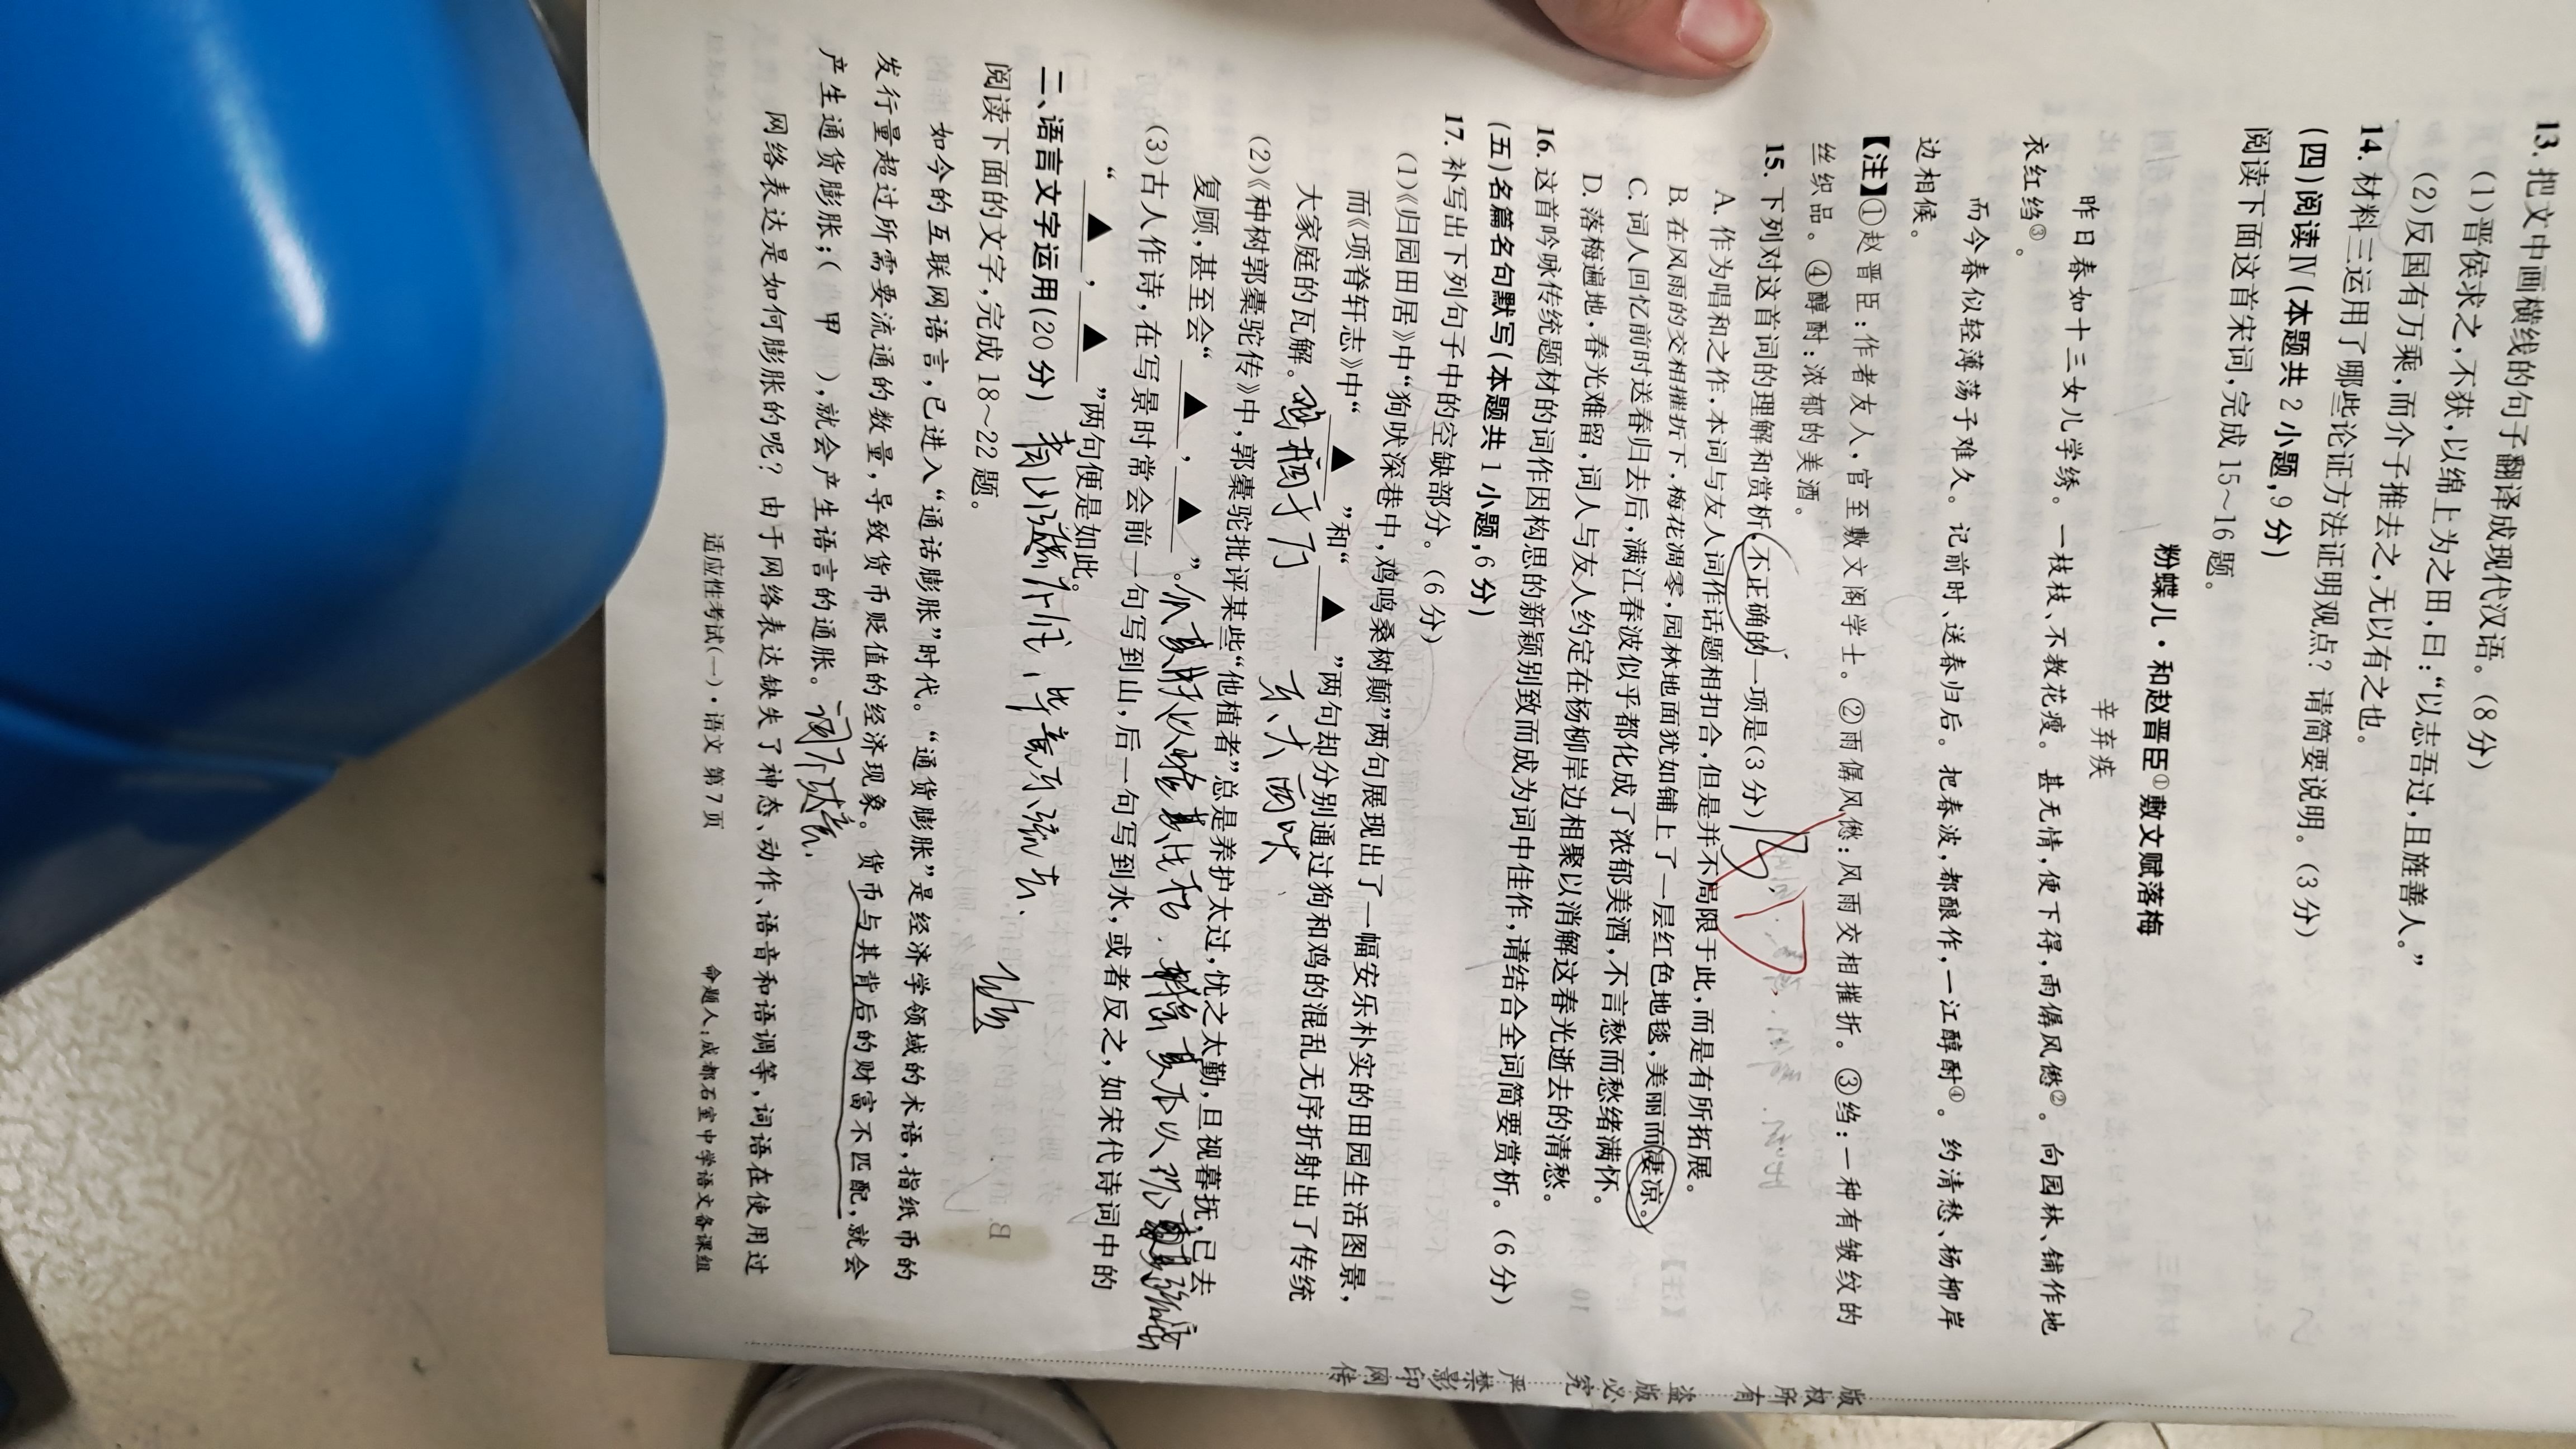 13. 把文中画横线的句子翻译成现代汉语。(8分)
(1)晋侯求之,不获,以绵上为之田,曰:“以志吾过,且旌善人。”
(2)反国有万乘,而介子推去之,无以有之也。
14. 材料三运用了哪些论证方法证明观点?请简要说明。(3分)
(四)阅读Ⅳ(本题共2小题,9分)
阅读下面这首宋词,完成15~16题。
粉蝶儿·和赵晋臣①敷文赋落梅
辛弃疾
昨日春如十三女儿学绣。一枝枝、不教花瘦。甚无情,便下得,雨僝风僽②。向园林、铺作地
衣红绉③。
而今春似轻薄荡子难久。记前时、送春归后。把春波,都酿作,一江醇酎④。约清愁、杨柳岸
边相候。
【注】①赵晋臣:作者友人,官至敷文阁学士。②雨僝风僽:风雨交相摧折。③绉:一种有皱纹的
丝织品。④醇酎:浓郁的美酒。
15. 下列对这首词的理解和赏析,不正确的一项是(3分)
A. 作为唱和之作,本词与友人词作话题相扣合,但是并不局限于此,而是有所拓展。
B. 在风雨的交相摧折下,梅花凋零,园林地面犹如铺上了一层红色地毯,美丽而凄凉。
C. 词人回忆前时送春归去后,满江春波似乎都化成了浓郁美酒,不言愁而愁绪满怀。
D. 落梅遍地,春光难留,词人与友人约定在杨柳岸边相聚以消解这春光逝去的清愁。
16. 这首吟咏传统题材的词作因构思的新颖别致而成为词中佳作,请结合全词简要赏析。(6分)
(五)名篇名句默写(本题共1小题,6分)
17. 补写出下列句子中的空缺部分。(6分)
(1)《归园田居》中“狗吠深巷中,鸡鸣桑树颠”两句展现出了一幅安乐朴实的田园生活图景,
而《项脊轩志》中“▲”和“▲”两句却分别通过狗和鸡的混乱无序折射出了传统
大家庭的瓦解。
东犬西吠
(2)《种树郭橐驼传》中,郭橐驼批评某些“他植者”总是养护太过,忧之太勤,旦视暮抚,已去
复顾,甚至会“▲,▲”。爪其肤以验其生枯
(3)古人作诗,在写景时常会前一句写到山,后一句写到水,或者反之,如宋代诗词中的
“▲,▲”两句便是如此。
二、语言文字运用(20分) 青山遮不住,毕竟东流去
阅读下面的文字,完成18~22题。
如今的互联网语言,已进入“通话膨胀”时代。“通货膨胀”是经济学领域的术语,指纸币的
发行量超过所需要流通的数量,导致货币贬值的经济现象。货币与其背后的财富不匹配,就会
产生通货膨胀;(甲),就会产生语言的通胀。
网络表达是如何膨胀的呢?由于网络表达缺失了神态、动作、语音和语调等,词语在使用过
适应性考试(一)·语文 第7页
命题人:成都石室中学语文备课组
版权所有 盗版必究 严禁影印网传